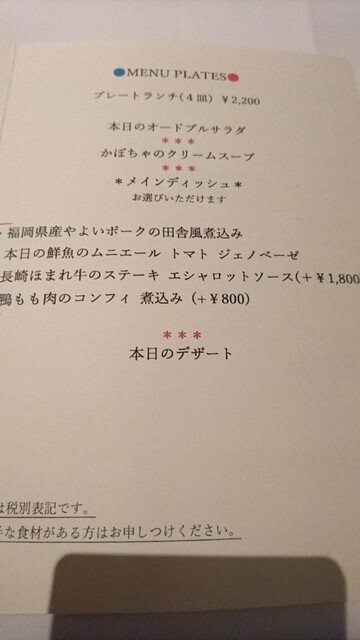 ●MENU PLATES●
プレートランチ(4皿) ¥2,200
本日のオードブルサラダ
***
かぼちゃのクリームスープ
***
*メインディッシュ*
お選びいただけます
・福岡県産やよいポークの田舎風煮込み
本日の鮮魚のムニエール トマト ジェノベーゼ
長崎ほまれ牛のステーキ エシャロットソース(+¥1,800
鴨もも肉のコンフィ 煮込み (+¥800)
***
本日のデザート
は税別表記です。
手な食材がある方はお申しつけください。